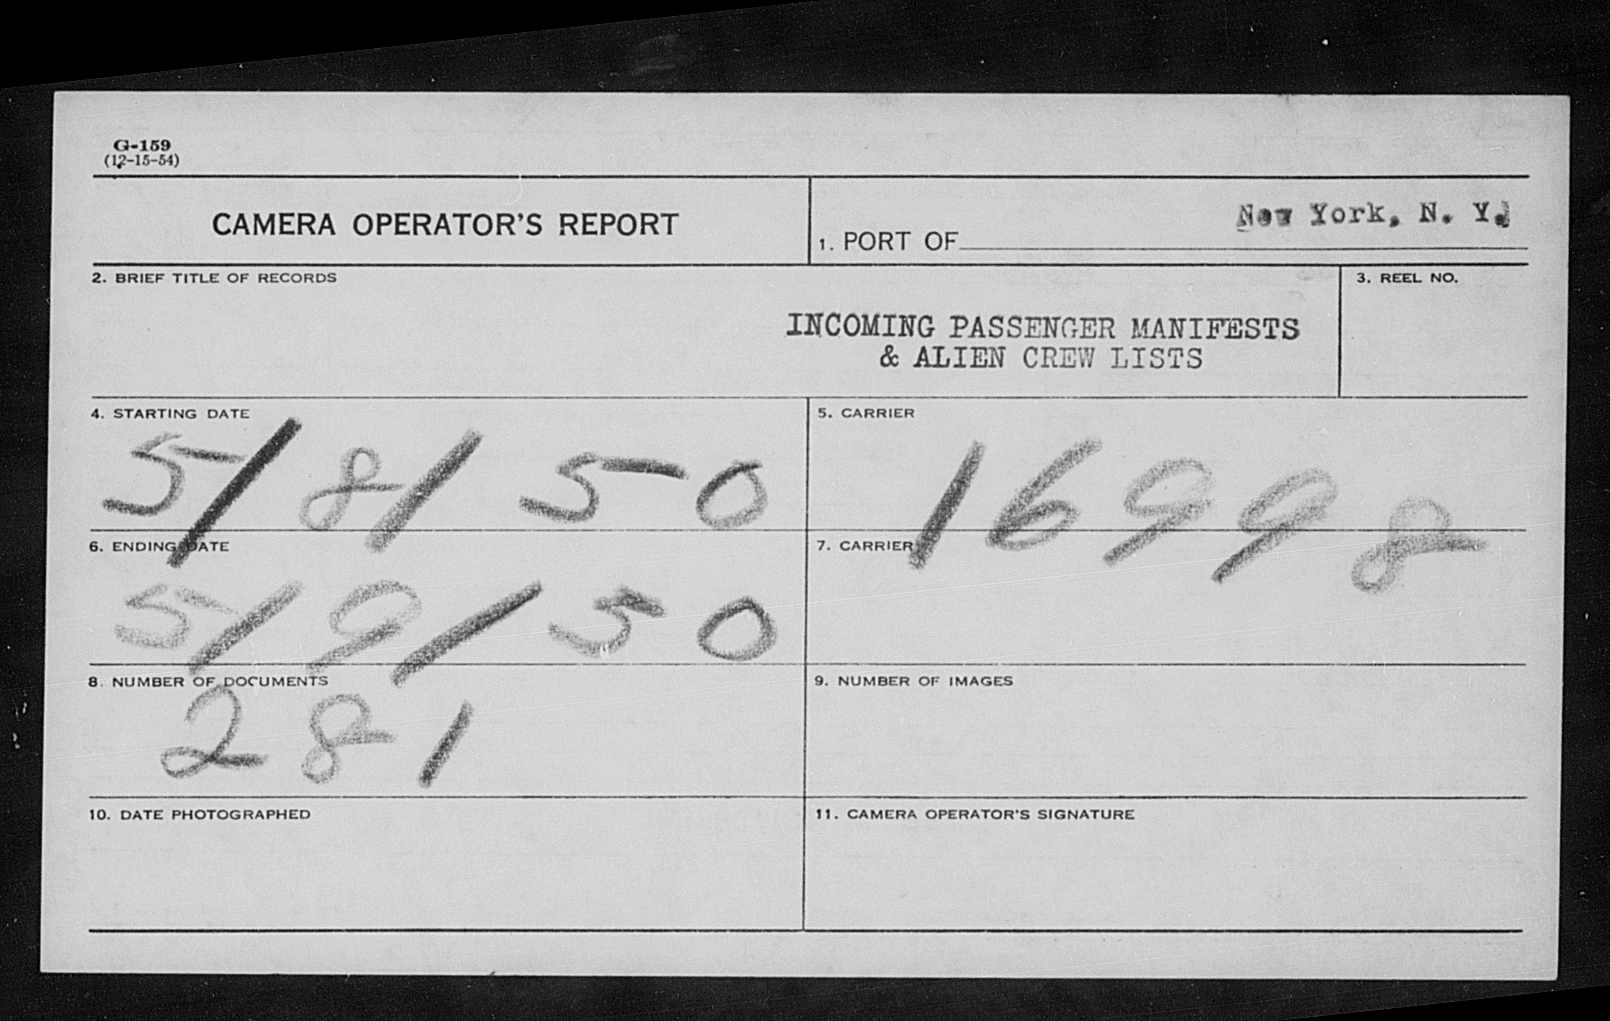 G-159
(12-15-54)
CAMERA OPERATOR'S REPORT
1. PORT OF New York, N. Y.
2. BRIEF TITLE OF RECORDS
INCOMING PASSENGER MANIFESTS
& ALIEN CREW LISTS
3. REEL NO.
4. STARTING DATE
5/8/50
5. CARRIER
16998
6. ENDING DATE
5/9/50
7. CARRIER
8. NUMBER OF DOCUMENTS
281
9. NUMBER OF IMAGES
10. DATE PHOTOGRAPHED
11. CAMERA OPERATOR'S SIGNATURE